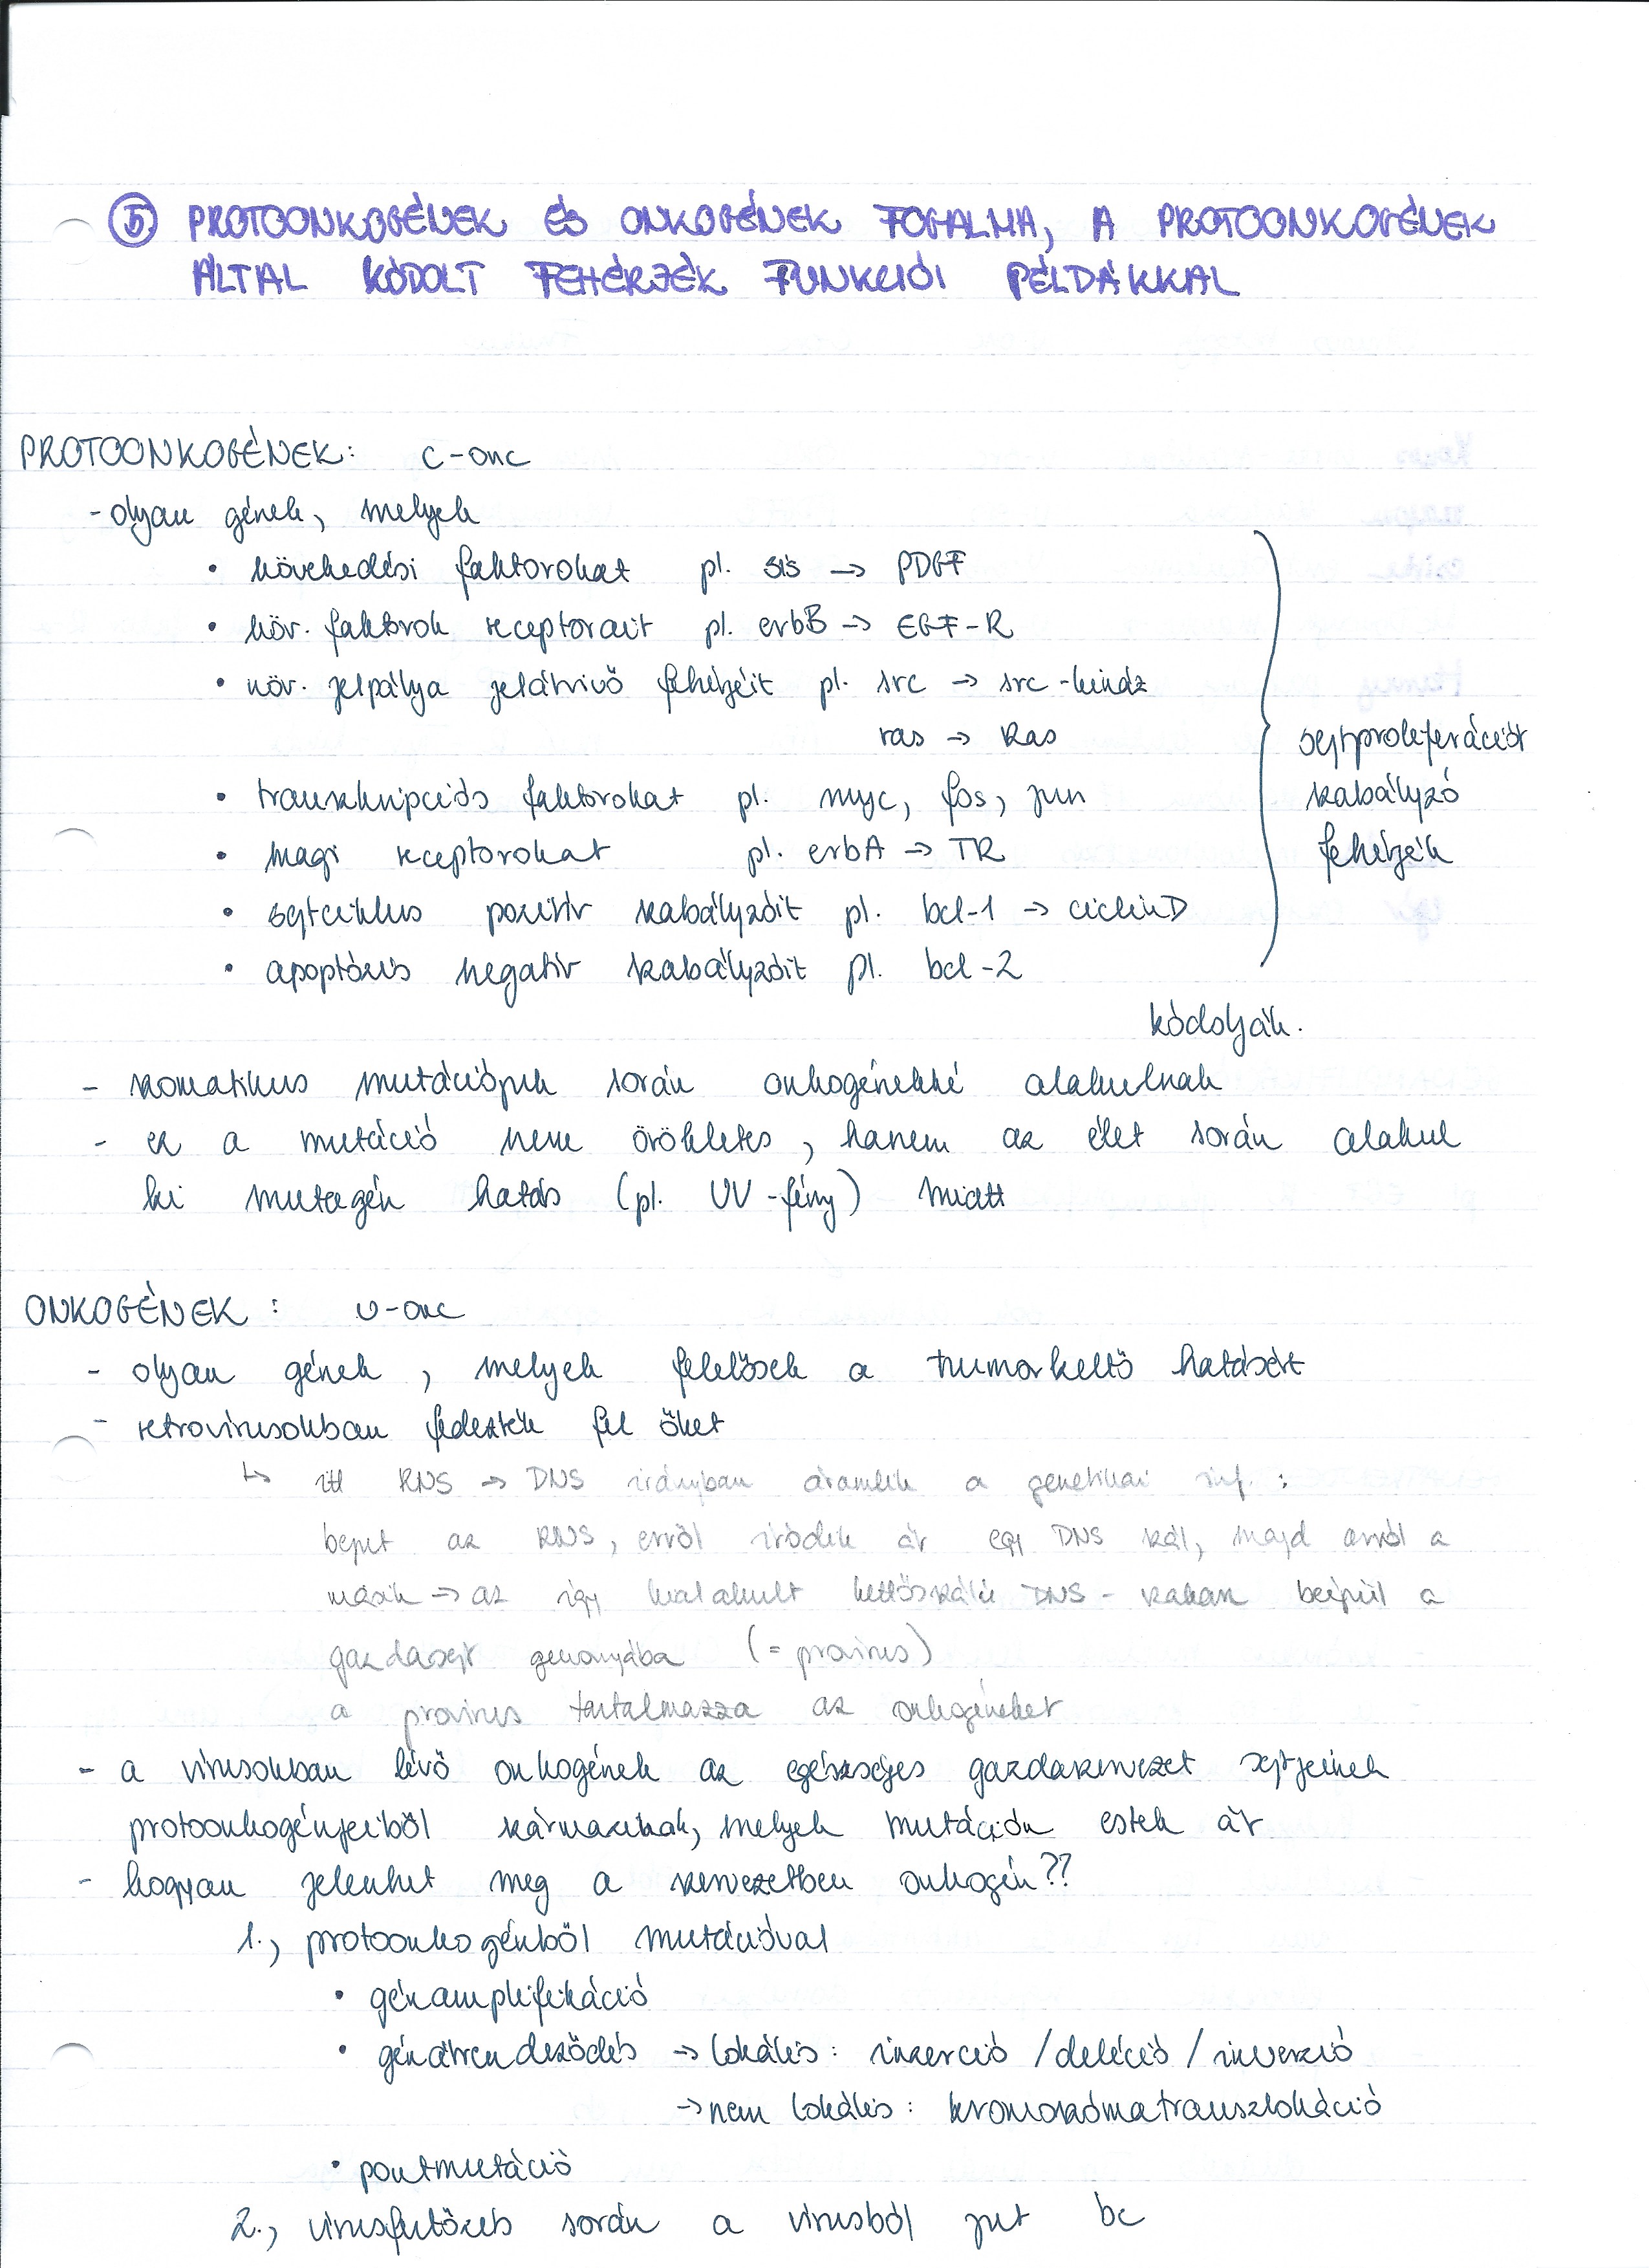 5. PROTOONKOGÉNEK ÉS ONKOGÉNEK FOGALMA, A PROTOONKOGÉNEK
ÁLTAL KÓDOLT FEHÉRJÉK FUNKCIÓI PÉLDÁKKAL
PROTOONKOGÉNEK: c-onc
- olyan gének, melyek
• növekedési faktorokat pl. sis → PDGF
• növ. faktorok receptorait pl. erbB → EGF-R
• növ. jelpálya jelátvivő fehérjéit pl. src → src-kináz
ras → Ras
• transzkripciós faktorokat pl. myc, fos, jun
• magi receptorokat pl. erbA → TR
• sejtciklus pozitív szabályzóit pl. bcl-1 → ciclinD
• apoptózis negatív szabályzóit pl. bcl-2
sejtproliferációt
szabályzó
fehérjék
kódolják.
- szomatikus mutációjuk során onkogénekké alakulnak
- ez a mutáció nem örökletes, hanem az élet során alakul
ki mutagén hatás (pl. UV-fény) miatt
ONKOGÉNEK: v-onc
- olyan gének, melyek felelősek a tumorkeltő hatásért
- retrovirusokban fedezték fel őket
↳ itt RNS → DNS irányban áramlik a genetikai inf.:
bejut az RNS, erről íródik át egy DNS szál, majd arról a
másik → az így kialakult kettősszálú DNS-szakasz beépül a
gazdasejt genomjába (= provirus)
a provirus tartalmazza az onkogéneket
- a vírusokban lévő onkogének az egészséges gazdaszervezet sejtjeinek
protoonkogénjeiből származnak, melyek mutáción estek át
- hogyan jelenhet meg a szervezetben onkogén??
1., protoonkogénből mutációval
• génamplifikáció
• génátrendeződés → lokális: inzerció / deléció / inverzió
→ nem lokális: kromoszómatranszlokáció
• pontmutáció
2., vírusfertőzés során a vírusból jut be